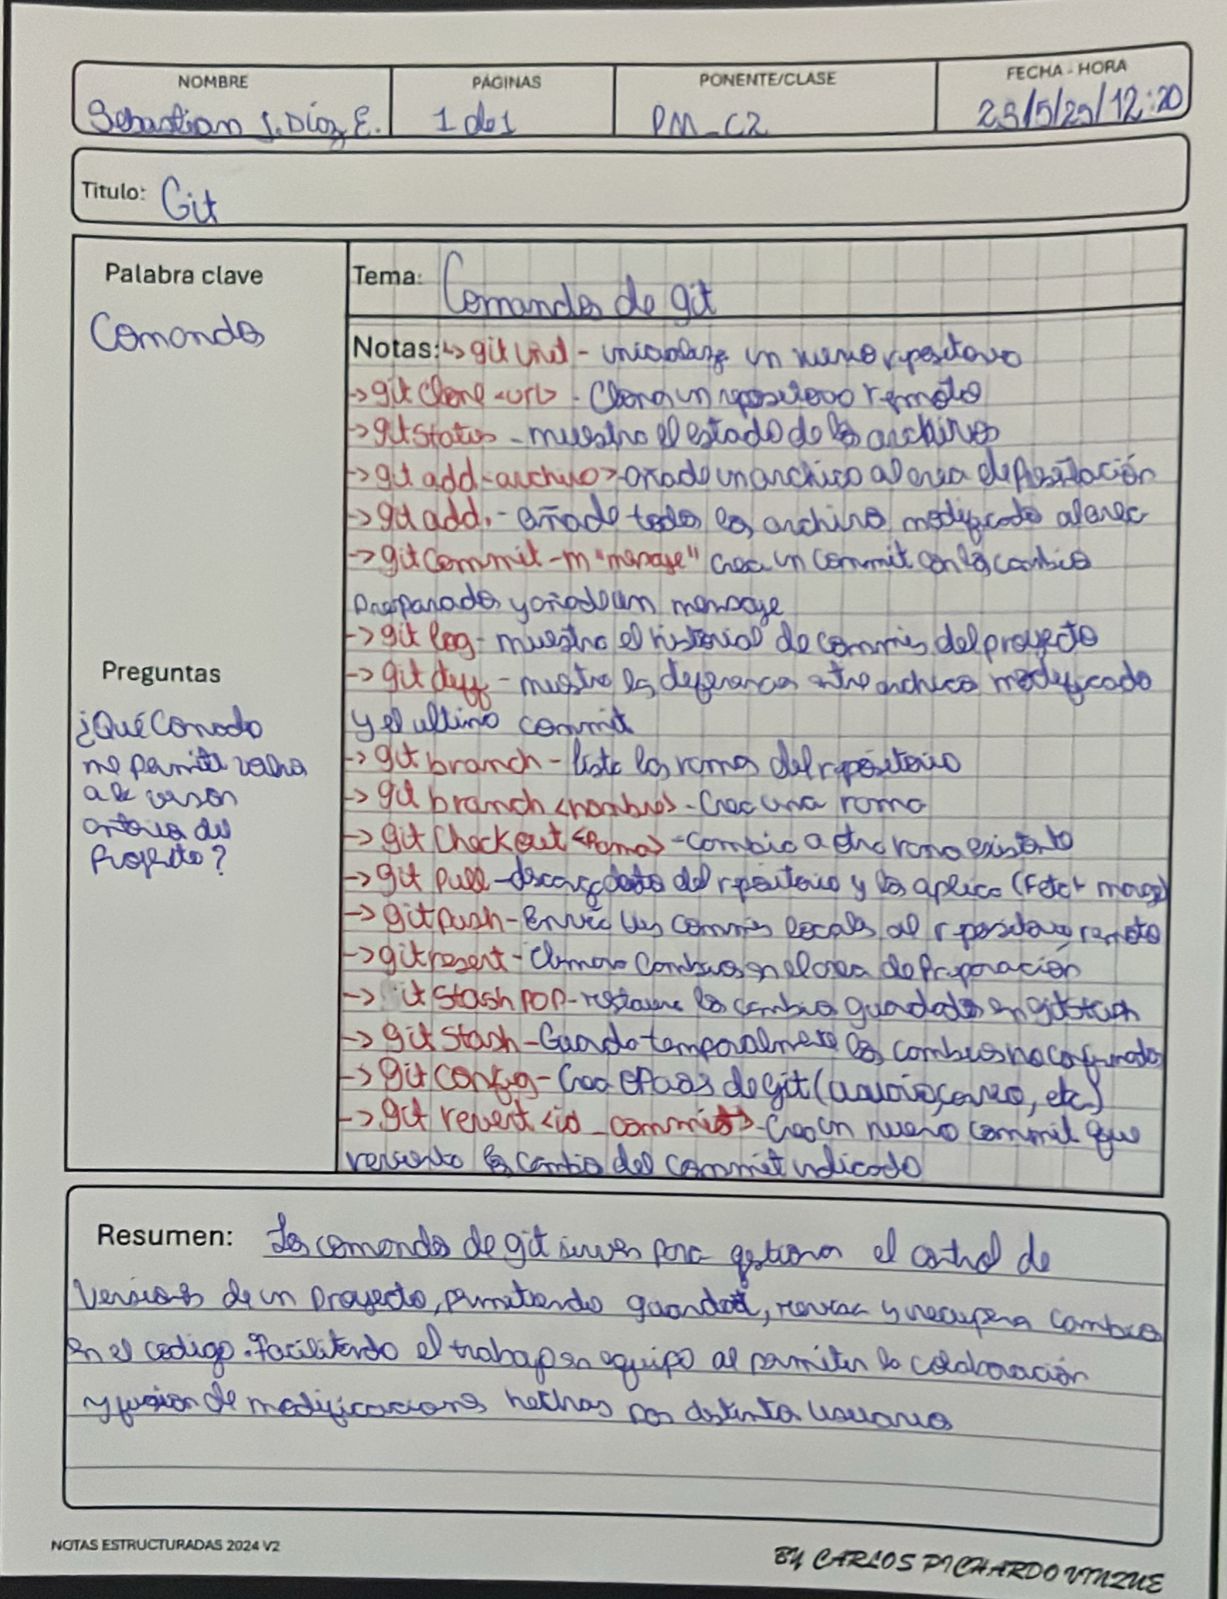 NOMBRE PÁGINAS PONENTE/CLASE FECHA - HORA
Sebastian J. Díaz E. 1 de 1 PM_C2 12:20
Titulo: Git
Palabra clave
Comando
Tema: Comandos de git
Notas: ↳ git init - inicialize un nuevo repositorio
-> git clone <url> - Clona un repositorio remoto
-> git status - muestra el estado de los archivos
-> git add <archivo> - añade un archivo al area de
-> git add . - añade todo los archivos modificado al area
-> git commit -m "mensaje" crea un commit con los cambios
preparados y añade un mensaje
-> git log - muestra el historial de commits del proyecto
-> git diff - mustra las diferencias entre archivos modificado
y el ultimo commit
-> git branch - lista las ramas del repositorio
-> git branch <nombre> - Crea una rama
-> git Checkout <Rama> - Cambia a otra rama existente
-> git pull - descarga datos del repositorio y los aplica (Fetch merge)
-> git push - Envia los commits locales al repositorio remoto
-> git resert - Elimina Cambios en el area de Preparación
-> git Stash POP - restaura los cambios guardados en git stash
-> git Stash - Guarda temporalmente los cambios no confirmados
-> git config - de git (usuario, correo, etc)
-> git revert <id_commit> - Crea un nuevo commit que
revierte los cambios del commit indicado
Preguntas
¿Qué Comado
me permite volver
a la version
anterior del
Proyecto?
Resumen: Los comandos de git sirven para gestionar el control de
Versiones de un proyecto, permitiendo guardar, revisar y recuperar cambios
en el codigo. Facilitando el trabajo en equipo al permitir la colaboración
y fusion de modificaciones hechas por distinto usuarios
NOTAS ESTRUCTURADAS 2024 V2
BY CARLOS PICHARDO VINZUE